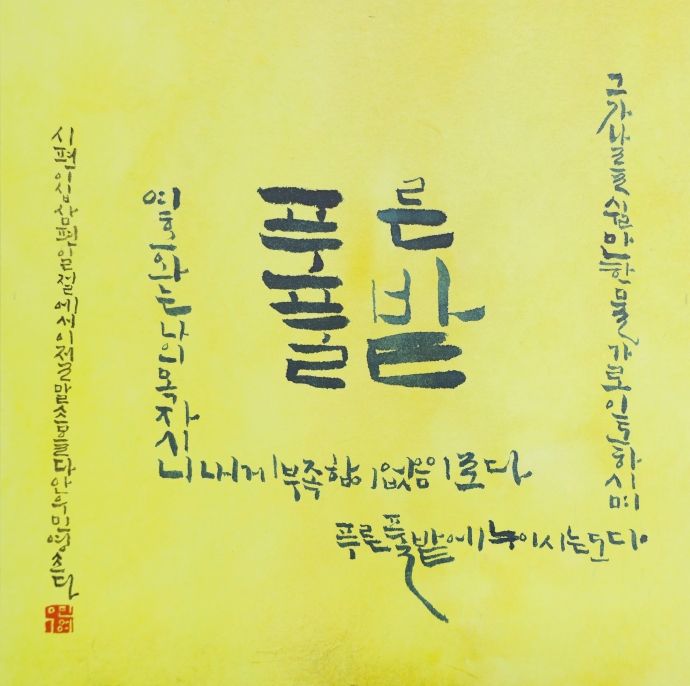 푸른
풀밭
여호와는 나의 목자시니 내게 부족함이 없음이로다
푸른 풀밭에 누이시는도다
그가 나를 쉴만한 물가로 인도하시며
시편 이십삼편 일절에서 이절 말씀 우민영 쓰다